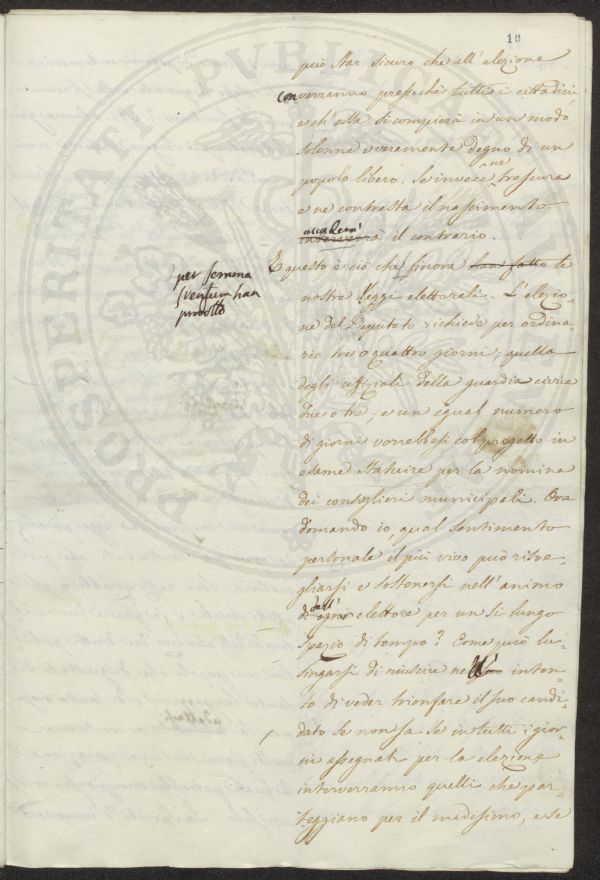 10
può star sicuro che all'elezione
converranno pressoché tutti i cittadini
e ch'essa si compierà in un modo
solenne e veramente degno di un
popolo libero. Se invece ne trascura
e ne contrasta il nascimento
accaderà
interverrà il contrario.
E questo è ciò che finora han fatto le
per semma
sventura han
prodotto
nostre Leggi elettorali. L'elezio=
ne del Deputato richiede per ordina=
rio tre o quattro giorni; quella
degli uffiziali della guardia civica
due o tre; e un egual numero
di giorni vorrebbesi col progetto in
esame statuire per la nomina
dei consiglieri municipali. Ora
domando io, qual sentimento
personale il più vivo può risve=
gliarsi e sostenersi nell'animo
dell'
di ogni elettore per un sì lungo
spazio di tempo? Come può lu=
singarsi di riuscire nell' inten=
to di veder trionfare il suo candi=
dato se non sa se in tutti i gior=
ni assegnati per la elezione
interverranno quelli che par=
teggiano per il medesimo, e se
PROSPERITATI PVBLICAE